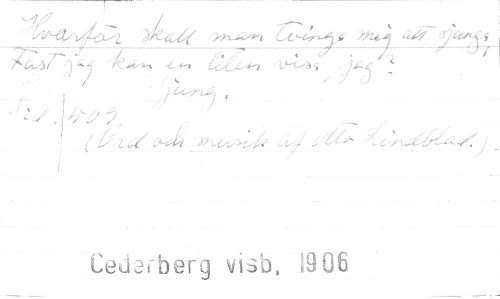 Hvarför skall man tvinga mig att sjunga,
Fast jag kan en liten visa, jag?
Sjung.
Sid. 409.
(Ord och musik af Otto Lindblad.)
Cederberg visb, 1906